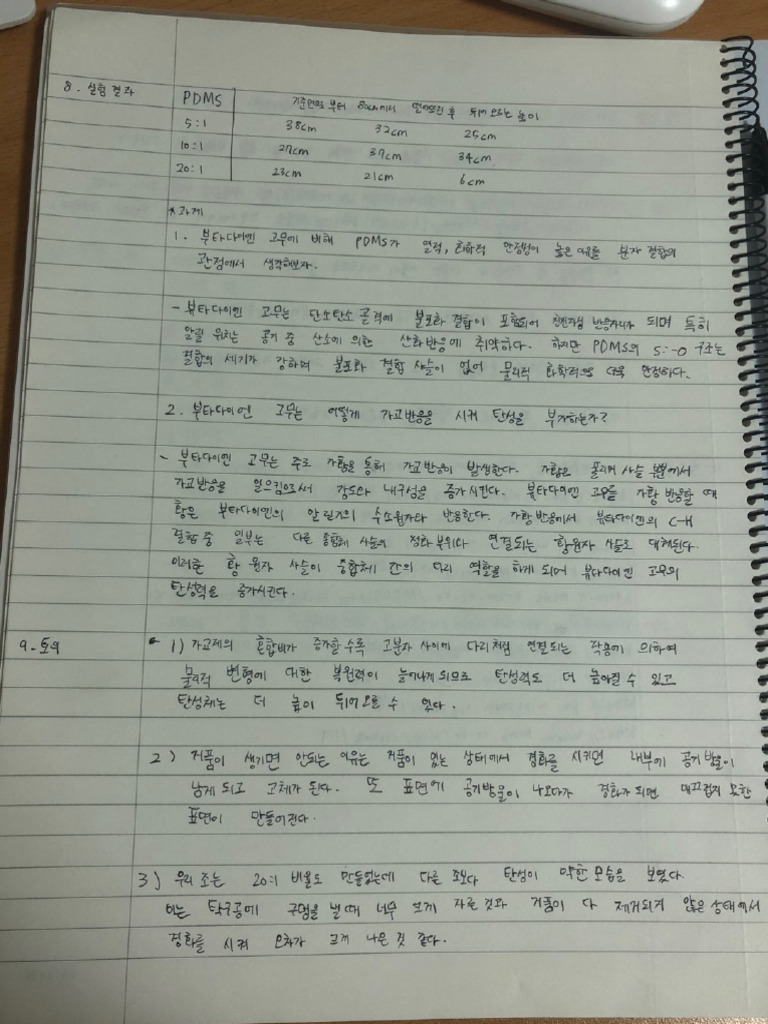 8. 실험결과
PDMS 기준면으로부터 80cm에서 떨어뜨린 후 튀어 오르는 높이
5:1 38cm 32cm 25cm
10:1 27cm 37cm 34cm
20:1 23cm 21cm 6cm
*과제
1. 부타다이엔 고무에 비해 PDMS가 열적, 화학적 안정성이 높은 이유를 분자 결합의
관점에서 생각해보자.
- 부타다이엔 고무는 탄소탄소 골격에 불포화 결합이 포함되어 반응자리가 되며 특히
알릴 위치는 공기 중 산소에 의한 산화반응에 취약하다. 하지만 PDMS의 Si-O 구조는
결합의 세기가 강하며 불포화 결합 사슬이 없어 물리적 화학적으로 더욱 안정하다.
2. 부타다이엔 고무는 어떻게 가교반응을 시켜 탄성을 부가하는가?
- 부타다이엔 고무는 주로 가황을 통해 가교반응이 발생한다. 가황은 폴리머 사슬 부분에서
가교반응을 일으킴으로써 강도와 내구성을 증가시킨다. 부타다이엔 고무를 가황 반응할 때
황은 부타다이엔의 알릴기의 수소원자와 반응한다. 가황반응에서 부타다이엔의 C-H
결합 중 일부는 다른 중합체 사슬의 경화 부위와 연결되는 황원자 사슬로 대체된다.
이러한 황 원자 사슬이 중합체 간의 다리 역할을 하게 되며 부타다이엔 고무의
탄성력을 증가시킨다.
9. 토의 1) 가교제의 혼합비가 증가할수록 고분자 사이에 다리처럼 연결되는 작용에 의하여
물리적 변형에 대한 복원력이 늘어나게 되므로 탄성력도 더 높아질 수 있고
탄성체는 더 높이 튀어오를 수 있다.
2) 거품이 생기면 안되는 이유는 거품이 있는 상태에서 경화를 시키면 내부에 공기방울이
남게 되고 고체가 된다. 또 표면에 공기방울이 나오다가 경화가 되면 매끄럽지 못한
표면이 만들어진다.
3) 우리 조는 20:1 비율로 만들었는데 다른 조보다 탄성이 약한 모습을 보였다.
이는 탁구공에 구멍을 낼 때 너무 크게 자른 것과 거품이 다 제거되지 않은 상태에서
경화를 시켜 오차가 크게 나온 것 같다.